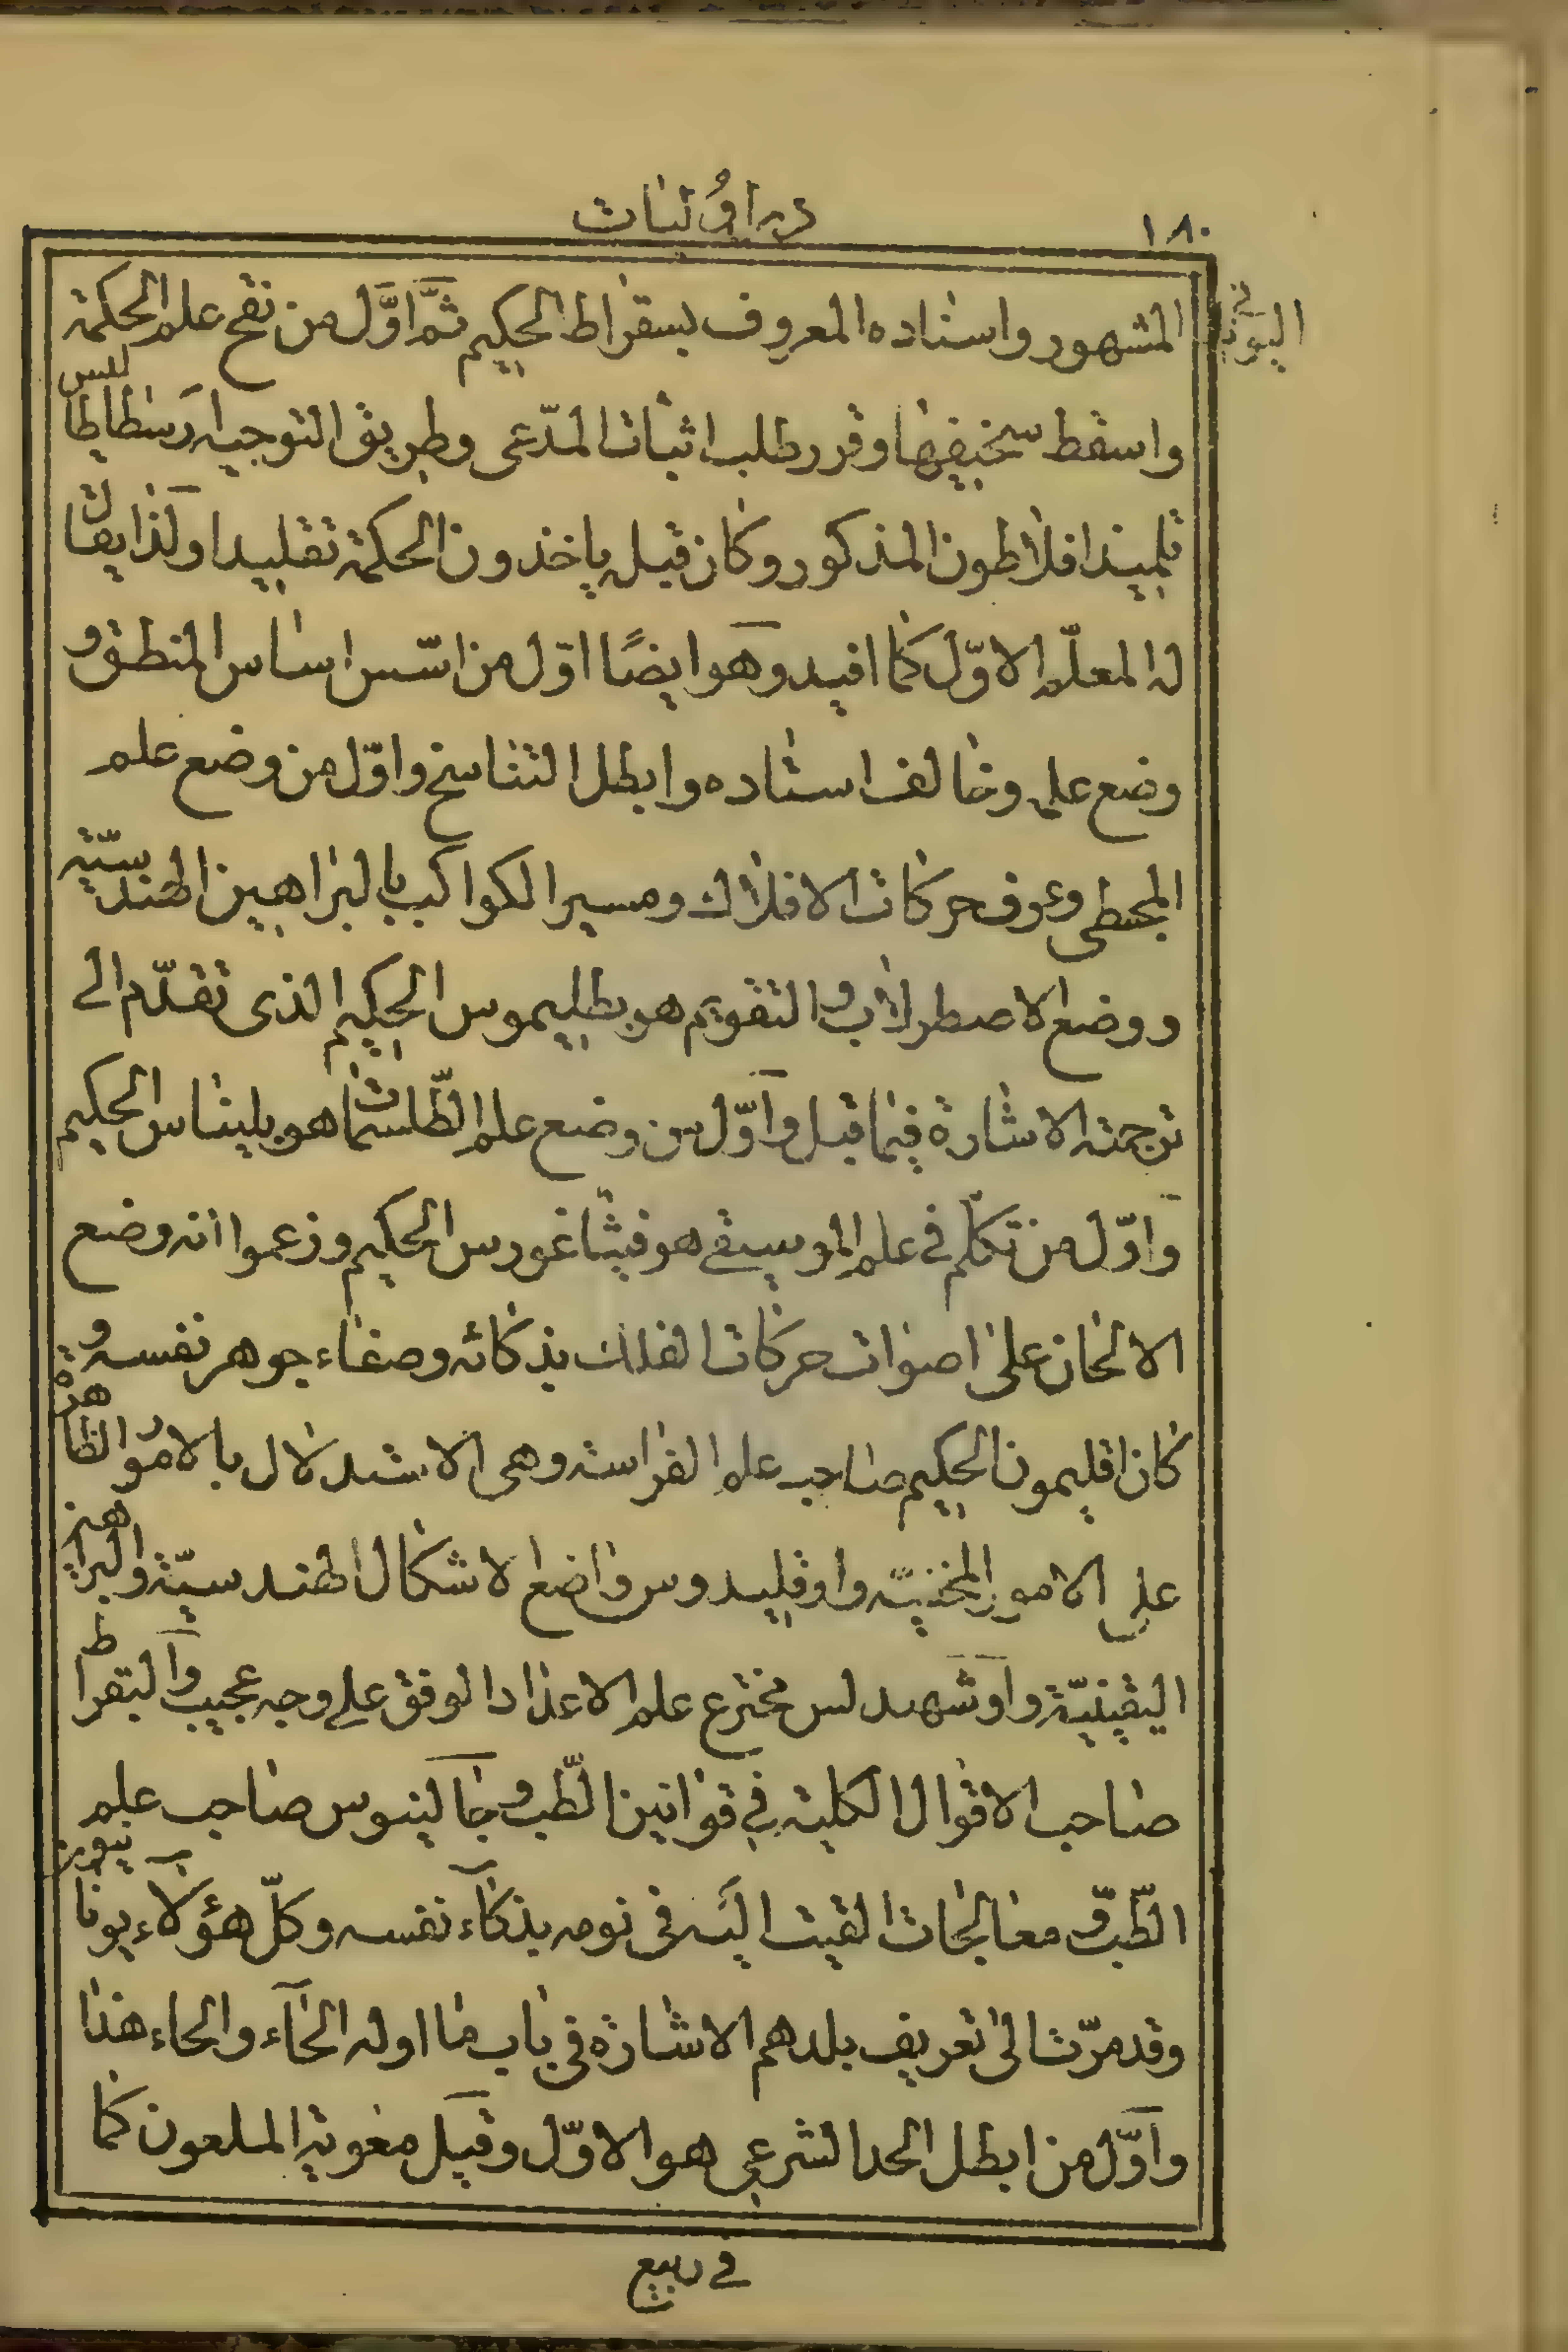 ١٨٠
در اوليات
اليوناني
المشهور واستاده المعروف بسقراط الحكيم ثمّ اوّل من نقح علم الحكمة
واسقط سخيفها وقرر طلب اثبات المدّعى وطريق التوجيه ارسطاطاليس
تلميذ افلاطون المذكور وكان قبله ياخذون الحكمة تقليدا ولذا يقال
له المعلّم الاوّل كما افيد وهو ايضًا اوّل من اسّس اساس المنطق و
وضع على وخالف استاده وابطل التناسخ واوّل من وضع علم
المجسطى وعرف حركات الافلاك ومسير الكواكب بالبراهين الهندسيّة
ووضع الاصطرلاب والتقويم هو بطليموس الحكيم الذى تقدّم الى
ترجمته الاشارة فيما قبل واوّل من وضع علم الطّلسمات هو بليناس الحكيم
واوّل من تكلّم في علم الموسيقى هو فيثاغورس الحكيم وزعموا انه وضع
الالحان على اصوات حركات الفلك بذكائه وصفاء جوهر نفسه و
كان اقليمون الحكيم صاحب علم الفراسة وهى الاستدلال بالامور الظاهرة
على الامور المخفيّة واوقليدوس واضع الاشكال الهندسيّة والبراهين
اليقينيّة واوشهيدلس مخترع علم الاعداد الوفق على وجه عجيب والبقراط
صاحب الاقوال الكلية في قوانين الطّب وجالينوس صاحب علم
الطّب ومعالجات القيت اليه فى نومه بذكاء نفسه وكلّ هؤلاء يونانيون
وقد مرّت الى تعريف بلدهم الاشارة فى باب ما اوله الخاء والحاء هذا
واوّل من ابطل الحد الشرعى هو الاوّل وقيل معوية الملعون كما
في ربيع